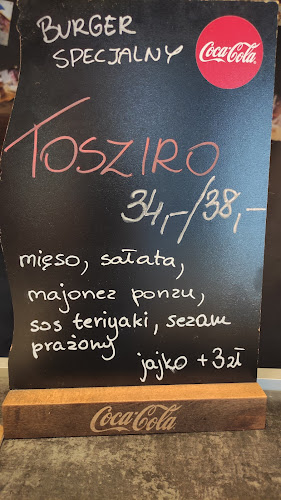 BURGER
SPECJALNY
Coca-Cola
TOSZIRO
34,-/38,-
mięso, sałata,
majonez ponzu,
sos teriyaki, sezam
prażony
jajko + 3zł
Coca-Cola